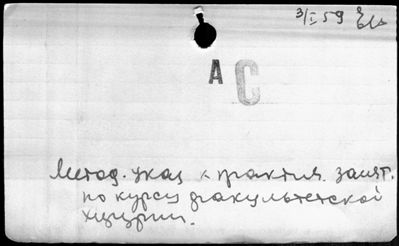 3/I 59
АС
Метод. указ к практич. занят.
по курсу факультетской
хирургии.